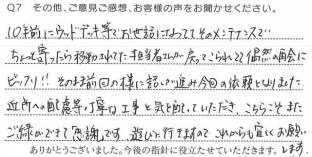 Q7 その他、ご意見ご感想、お客様の声をお聞かせください。
10年前にウッドデッキ等でお世話になっててそのメンテナンスで
ちょっと寄ったら移動されてた担当者さんが戻ってこられてて偶然の再会に
ビックリ!! そのまま前回の様に話しが進み今回の依頼となりました。
近所への配慮等、丁寧な工事と気を配していただき、こちらこそまた
ご縁ができて感謝です。遊びに行きますのでこれからも宜しくお願い
します。
ありがとうございました。今後の指針に役立たせていただきます。